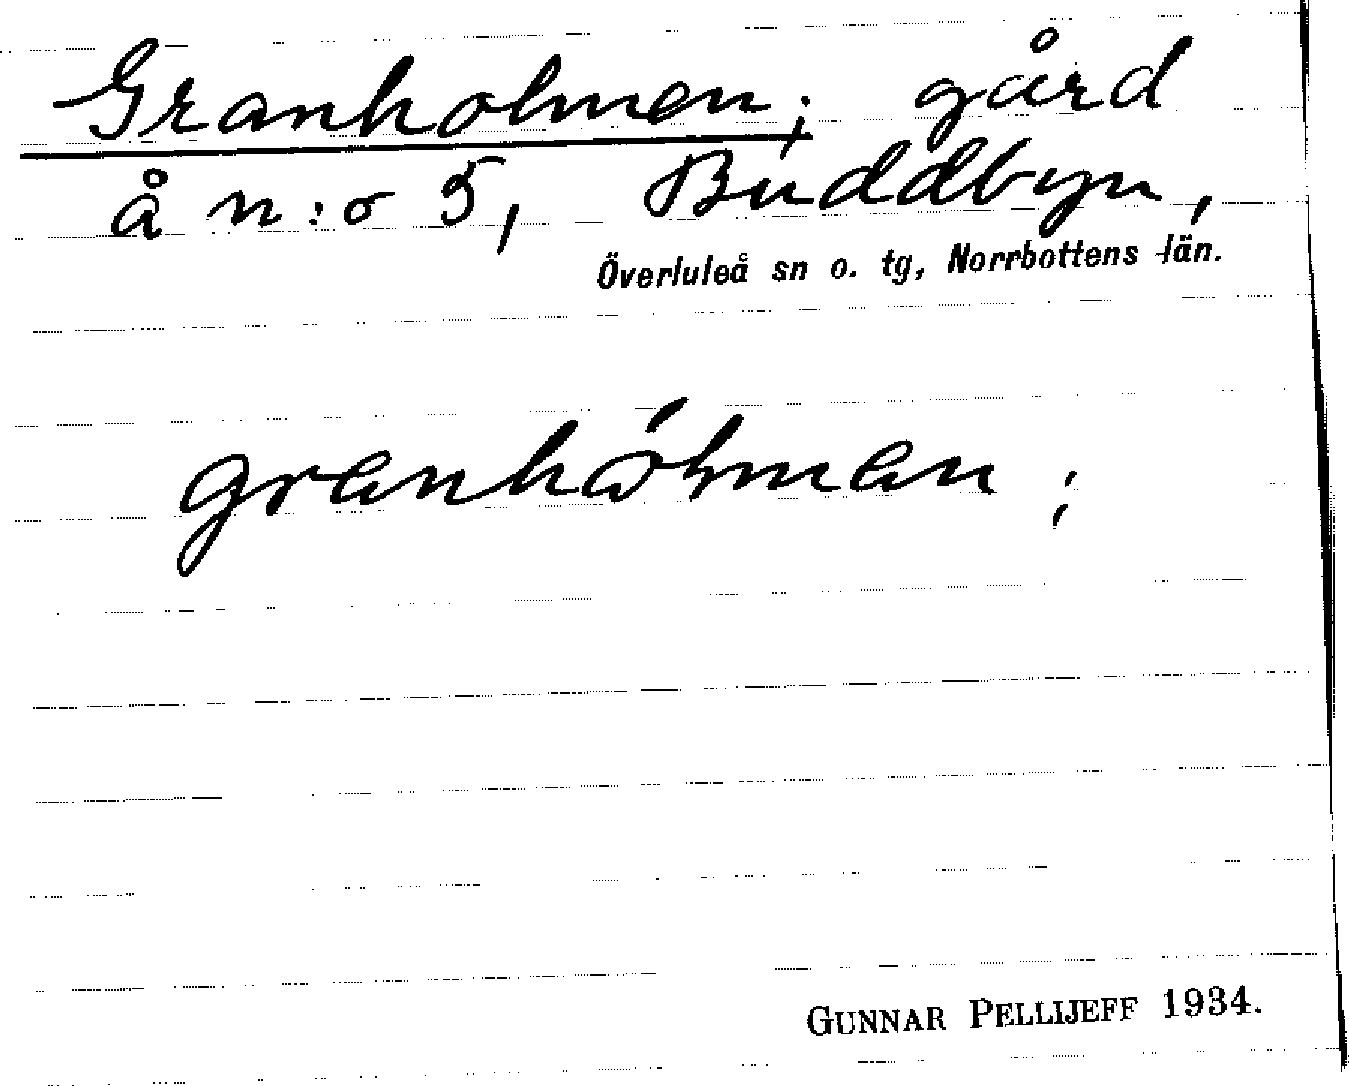 Granholmen; gård
å n:o 5, Buddbyn,
Överluleå sn o. tg, Norrbottens län.
granhólman;
GUNNAR PELLIJEFF 1934.